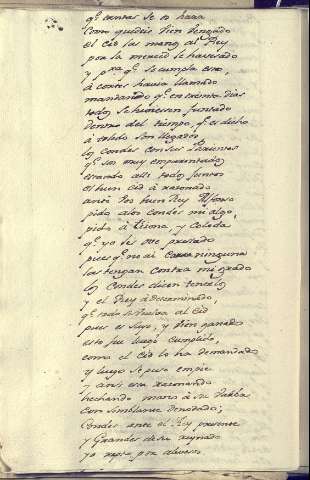 como quedeis bien vengado
el Cid las manos al Rey
por la merced le ha besado
y pa qe. se cumpla esto,
á cortes havia llamado
mandando qe. en treinta dias
todos se huviesen juntado
dentro del tiempo qe. es dicho
á toledo son llegados
los condes con sus Parientes
qe. son muy emparentados
estando alli todos juntos
el buen Cid á razonado
ansi: Vos buen Rey Alfonso
pido a los condes mi algo,
pido á Tizona y Colada
qe. yo les ove prestado
pues qe. no es ninguna
las tengan contra mi grado
los Condes dicen tenerlas
y el Rey á determinado,
qe. se vuelva al Cid
pues es suyo, y bien ganado
esto fue luego cumplido,
como el Cid lo ha demandado
y luego se puso en pie
y ansi esta razonando
hechando mano á su barba
con semblante denodado;
Condes ante el Rey presente
y Grandes de su reynado
yo repto por alevosos